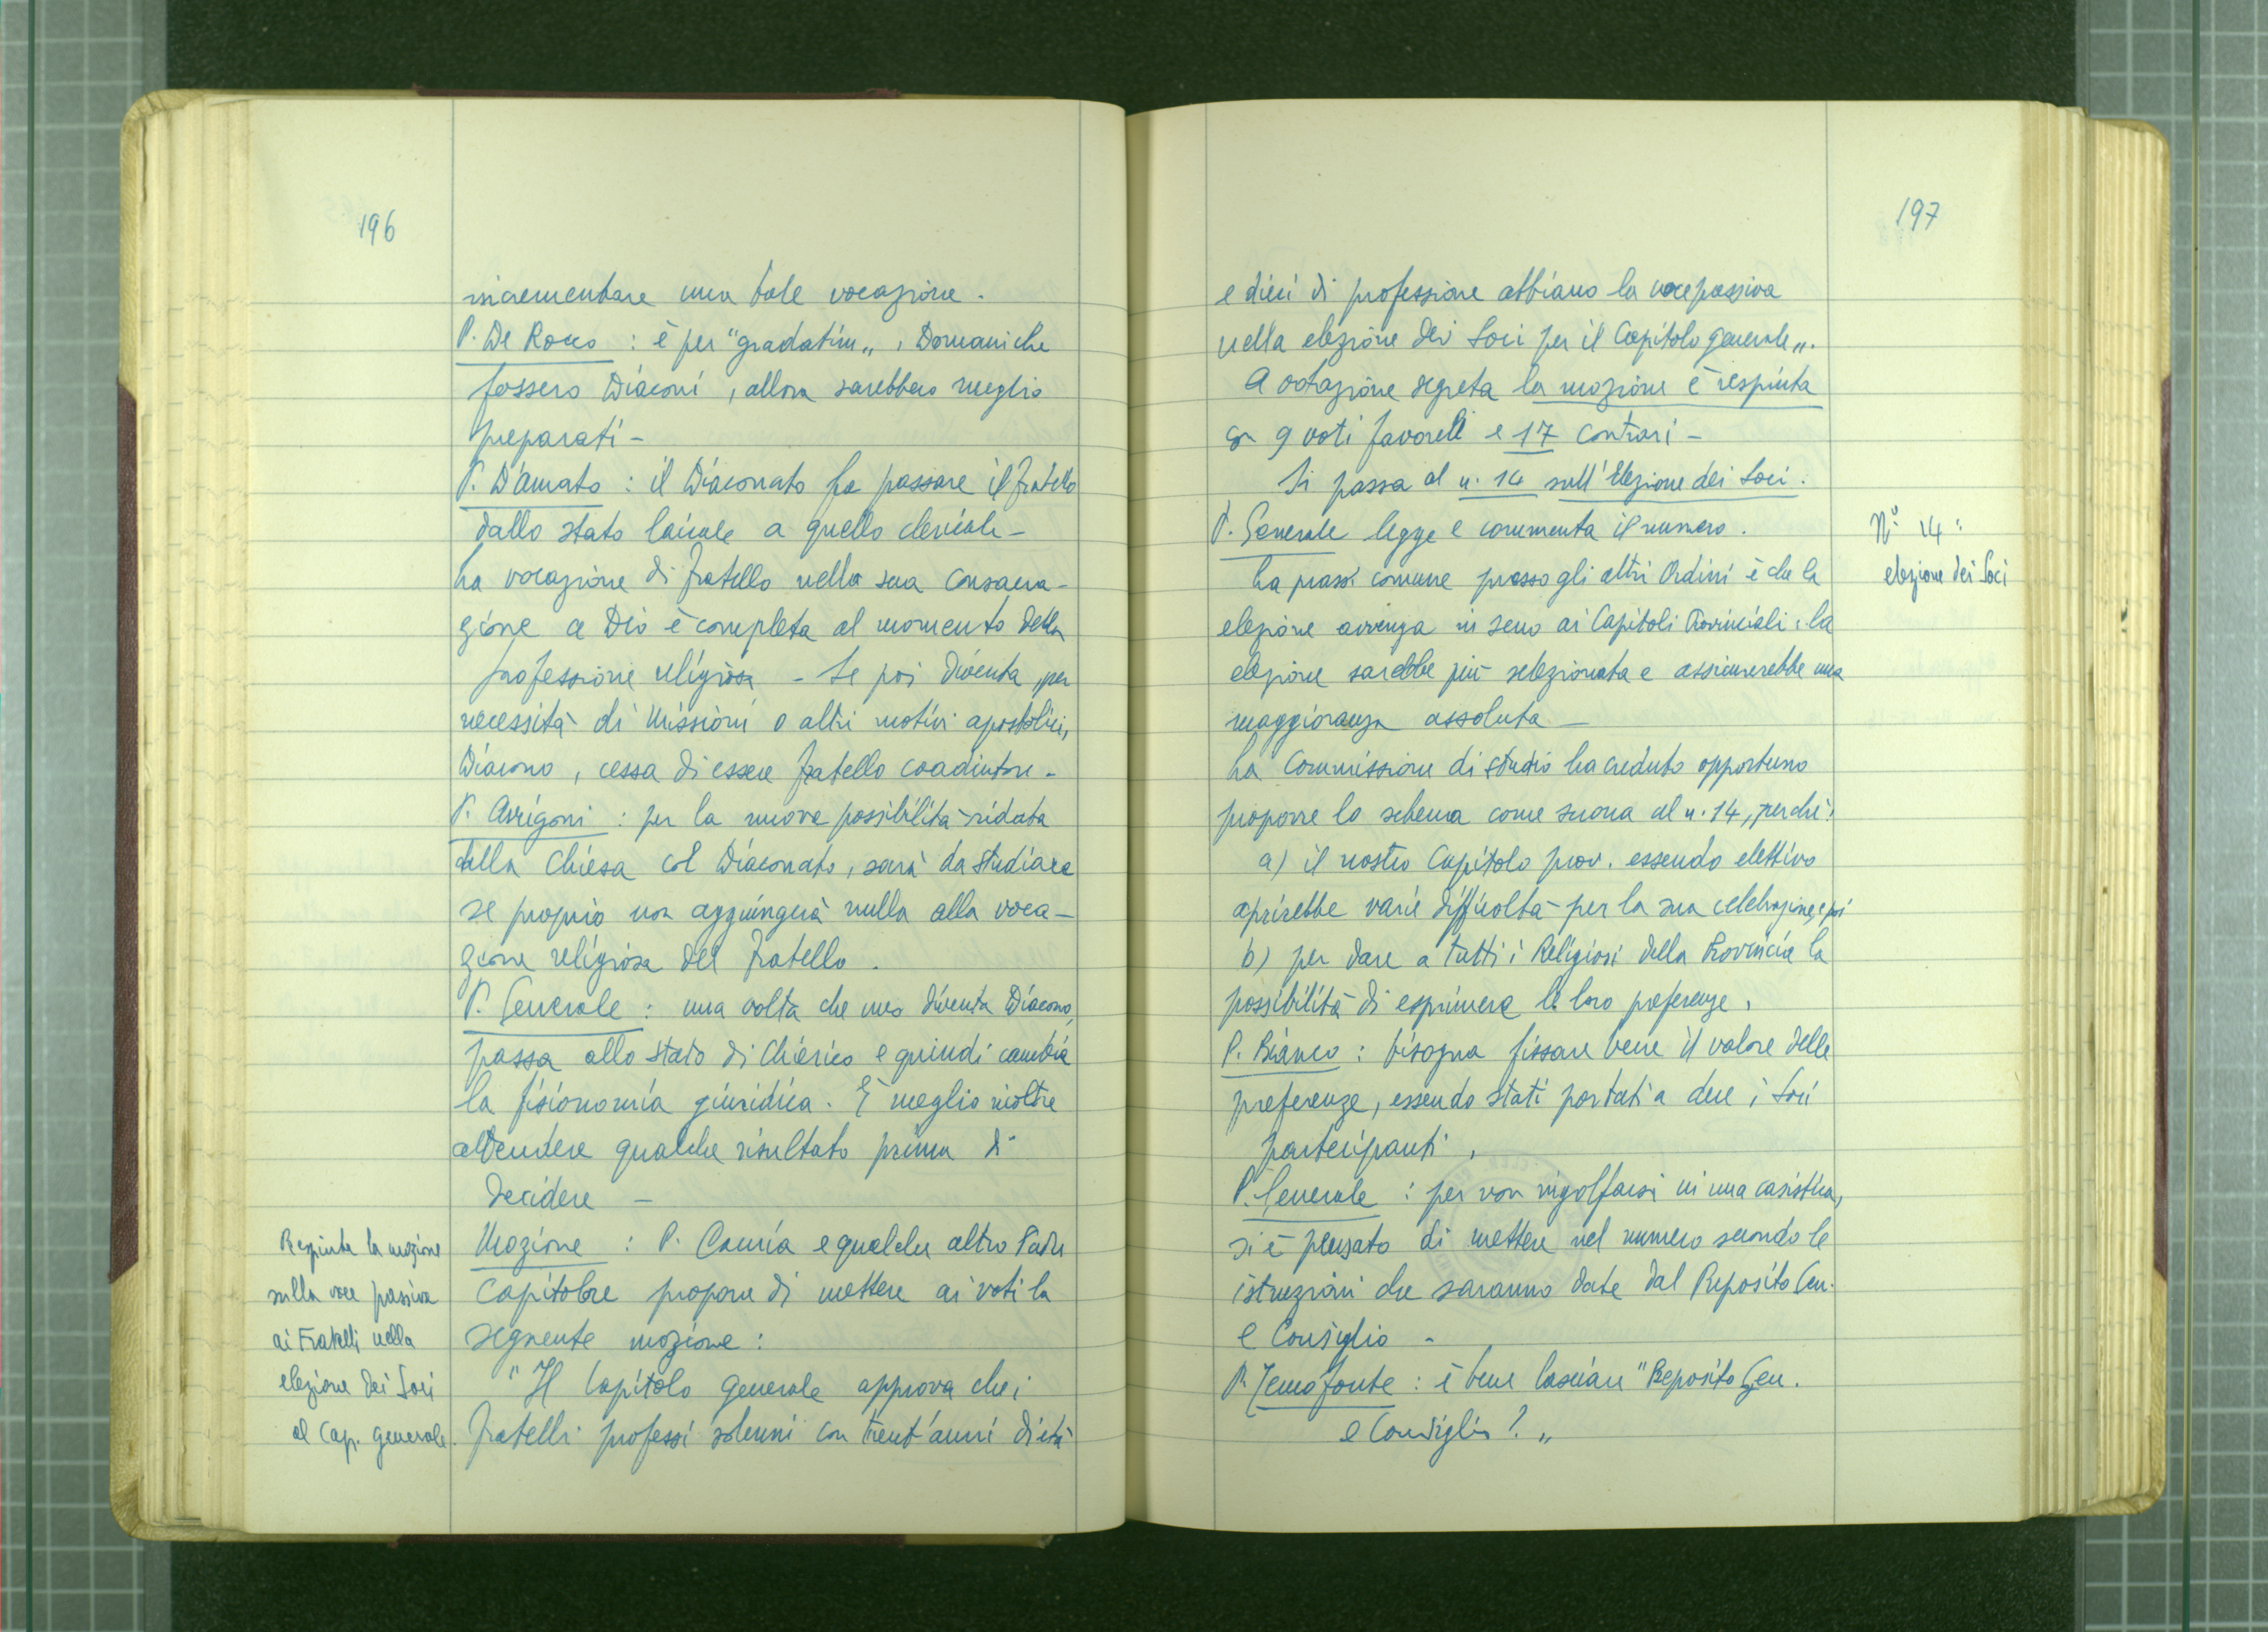 196
incrementare una tale vocazione.
P. De Rocco : è per "gradatim„ , Domani che
fossero Diaconi , allora sarebbero meglio
preparati -
P. D'Amato : il Diaconato fa passare il fratello
dallo stato laicale a quello clericale -
La vocazione di fratello nella sua consacra-
zione a Dio è completa al momento della
professione religiosa - Se poi diventa , per
necessità di Missioni o altri motivi apostolici,
Diacono , cessa di essere fratello coadiutore -
P. Arrigoni : per la nuova possibilità ridata
dalla Chiesa col Diaconato, sarà da studiare
se proprio non aggiungerà nulla alla voca-
zione religiosa del fratello .
P. Generale : una volta che uno diventa Diacono,
passa allo stato di Chierico e quindi cambia
la fisionomia giuridica. È meglio inoltre
attendere qualche risultato prima di
decidere -
Respinta la mozione
sulla voce passiva
ai Fratelli nella
elezione dei Soci
al Cap. generale.
Mozione : P. Cauria e qualche altro Padre
Capitolare propone di mettere ai voti la
seguente mozione :
"Il Capitolo Generale approva che i
fratelli professi solenni con trent'anni di età
197
e dieci di professione abbiano la voce passiva
nella elezione dei Soci per il Capitolo generale„.
A votazione segreta la mozione è respinta
con 9 voti favoreli e 17 contrari -
Si passa al n. 14 sull'Elezione dei Soci.
P. Generale legge e commenta il numero.
N.º 14:
elezione dei Soci
La prassi comune presso gli altri Ordini è che la
elezione avvenga in seno ai Capitoli Provinciali : la
elezione sarebbe più selezionata e assicurerebbe una
maggioranza assoluta -
La Commissione di studio ha creduto opportuno
proporre lo schema come suona al n. 14, perchè:
a) il nostro Capitolo prov. essendo elettivo
aprirebbe varie difficoltà per la sua celebrazione, e poi
b) per dare a tutti i Religiosi della Provincia la
possibilità di esprimere le loro preferenze ,
P. Bianco : bisogna fissare bene il valore delle
preferenze, essendo stati portati a dieci i Soci
partecipanti ,
P. Generale : per non ingolfarsi in una casistica,
si è pensato di mettere nel numero secondo le
istruzioni che saranno date dal Preposito Gen.
e Consiglio -
P. Zenofonte : è bene lasciare "Preposito Gen.
e Consiglio ? „